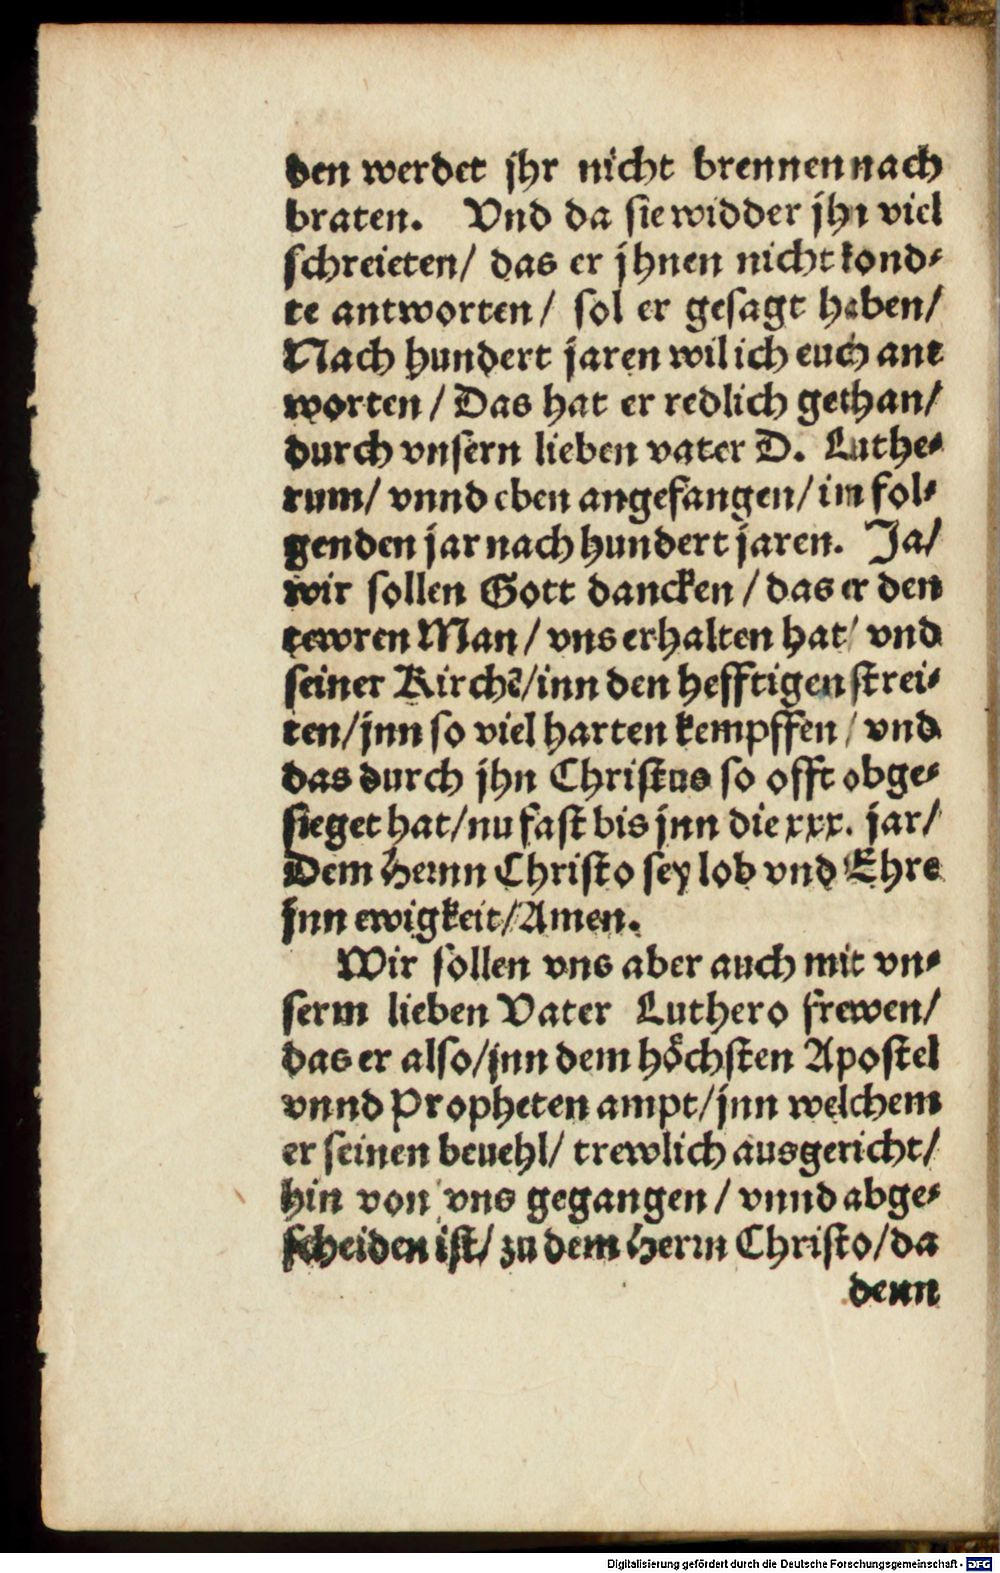 den werdet jhr nicht brennen nach
braten. Vnd da sie widder jhn viel
schreieten/ das er jhnen nicht kond⸗
te antworten/ sol er gesagt haben/
Nach hundert jaren wil ich euch ant
worten/ Das hat er redlich gethan/
durch vnsern lieben vater D. Luthe⸗
rum/ vnnd eben angefangen/ im fol⸗
genden jar nach hundert jaren. Ja/
wir sollen Gott dancken/ das er den
tewren Man/ vns erhalten hat/ vnd
seiner Kirchẽ/ inn den hefftigen strei⸗
ten/ jnn so viel harten kempffen/ vnd
das durch jhn Christus so offt obge⸗
sieget hat/ nu fast bis jnn die xxx. jar/
Dem Herrn Christo sey lob vnd Ehre
jnn ewigkeit/ Amen.
Wir sollen vns aber auch mit vn⸗
serm lieben Vater Luthero frewen/
das er also/ jnn dem höchsten Apostel
vnnd Propheten ampt/ jnn welchem
er seinen beuehl/ trewlich ausgericht/
hin von vns gegangen/ vnnd abge⸗
scheiden ist/ zu dem Herrn Christo/ da
denn
Digitalisierung gefördert durch die Deutsche Forschungsgemeinschaft - DFG